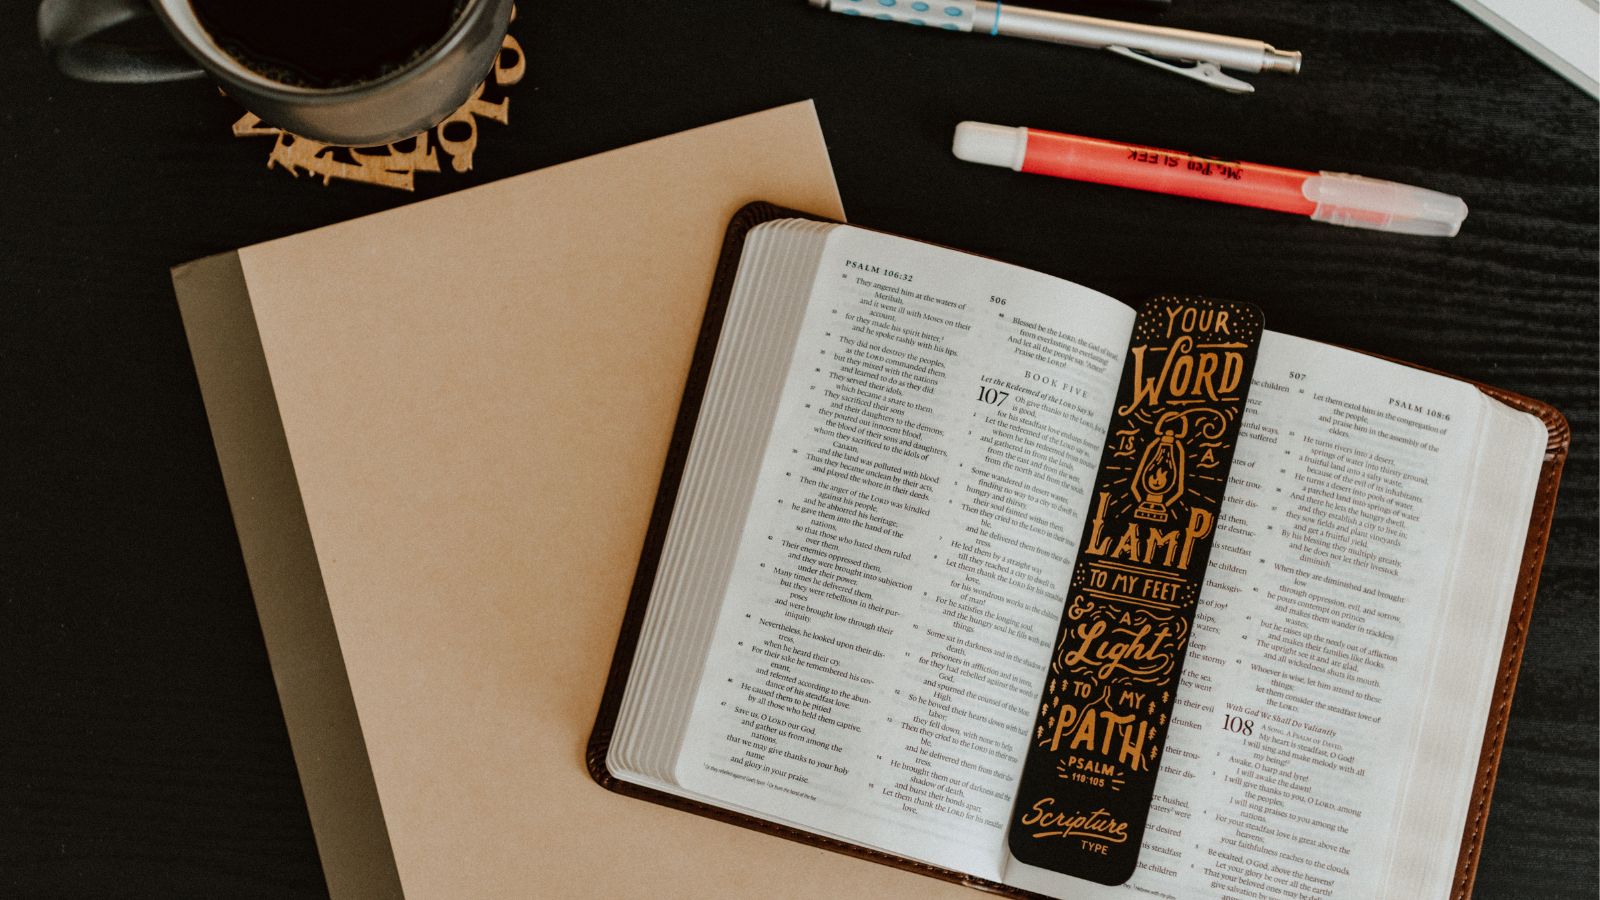 Mr. Pen SLEEK
PSALM 106:32
506
32 They angered him at the waters of
Meribah,
and it went ill with Moses on their
account,
33 for they made his spirit bitter,
and he spoke rashly with his lips.
34 They did not destroy the peoples,
as the LORD commanded them,
35 but they mixed with the nations
and learned to do as they did.
36 They served their idols,
which became a snare to them.
37 They sacrificed their sons
and their daughters to the demons;
38 they poured out innocent blood,
the blood of their sons and daughters,
whom they sacrificed to the idols of
Canaan,
and the land was polluted with blood.
39 Thus they became unclean by their acts,
and played the whore in their deeds.
40 Then the anger of the LORD was kindled
against his people,
and he abhorred his heritage;
41 he gave them into the hand of the
nations,
so that those who hated them ruled
over them.
42 Their enemies oppressed them,
and they were brought into subjection
under their power.
43 Many times he delivered them,
but they were rebellious in their pur-
poses
and were brought low through their
iniquity.
44 Nevertheless, he looked upon their dis-
tress,
when he heard their cry.
45 For their sake he remembered his cov-
enant,
and relented according to the abun-
dance of his steadfast love.
46 He caused them to be pitied
by all those who held them captive.
47 Save us, O LORD our God,
and gather us from among the
nations,
that we may give thanks to your holy
name
and glory in your praise.
48 Blessed be the LORD, the God of Israel,
from everlasting to everlasting!
And let all the people say, "Amen!"
Praise the LORD!
BOOK FIVE
Let the Redeemed of the LORD Say So
107 Oh give thanks to the LORD, for he
is good,
for his steadfast love endures forever!
2 Let the redeemed of the LORD say so,
whom he has redeemed from trouble
3 and gathered in from the lands,
from the east and from the west,
from the north and from the south.
4 Some wandered in desert wastes,
finding no way to a city to dwell in;
5 hungry and thirsty,
their soul fainted within them.
6 Then they cried to the LORD in their trou-
ble,
and he delivered them from their dis-
tress.
7 He led them by a straight way
till they reached a city to dwell in.
8 Let them thank the LORD for his steadfast
love,
for his wondrous works to the children
of man!
9 For he satisfies the longing soul,
and the hungry soul he fills with good
things.
10 Some sat in darkness and in the shadow of
death,
prisoners in affliction and in irons,
11 for they had rebelled against the words of
God,
and spurned the counsel of the Most
High.
12 So he bowed their hearts down with hard
labor;
they fell down, with none to help.
13 Then they cried to the LORD in their trou-
ble,
and he delivered them from their dis-
tress.
14 He brought them out of darkness and the
shadow of death,
and burst their bonds apart.
15 Let them thank the LORD for his steadfast
love,
YOUR
WORD
IS A
LAMP
TO MY FEET
& A
Light
TO MY
PATH
PSALM
119:105
Scripture
TYPE
507
PSALM 108:6
32 Let them extol him in the congregation of
the people,
and praise him in the assembly of the
elders.
33 He turns rivers into a desert,
springs of water into thirsty ground,
34 a fruitful land into a salty waste,
because of the evil of its inhabitants.
35 He turns a desert into pools of water,
a parched land into springs of water.
36 And there he lets the hungry dwell,
and they establish a city to live in;
37 they sow fields and plant vineyards
and get a fruitful yield.
38 By his blessing they multiply greatly,
and he does not let their livestock
diminish.
39 When they are diminished and brought
low
through oppression, evil, and sorrow,
40 he pours contempt on princes
and makes them wander in trackless
wastes;
41 but he raises up the needy out of affliction
and makes their families like flocks.
42 The upright see it and are glad,
and all wickedness shuts its mouth.
43 Whoever is wise, let him attend to these
things;
let them consider the steadfast love of
the LORD.
With God We Shall Do Valiantly
108 A SONG. A PSALM OF DAVID.
My heart is steadfast, O God!
I will sing and make melody with all
my being!
2 Awake, O harp and lyre!
I will awake the dawn!
3 I will give thanks to you, O LORD, among
the peoples;
I will sing praises to you among the
nations.
4 For your steadfast love is great above the
heavens;
your faithfulness reaches to the clouds.
5 Be exalted, O God, above the heavens!
Let your glory be over all the earth!
6 That your beloved ones may be delivered,
give salvation by your